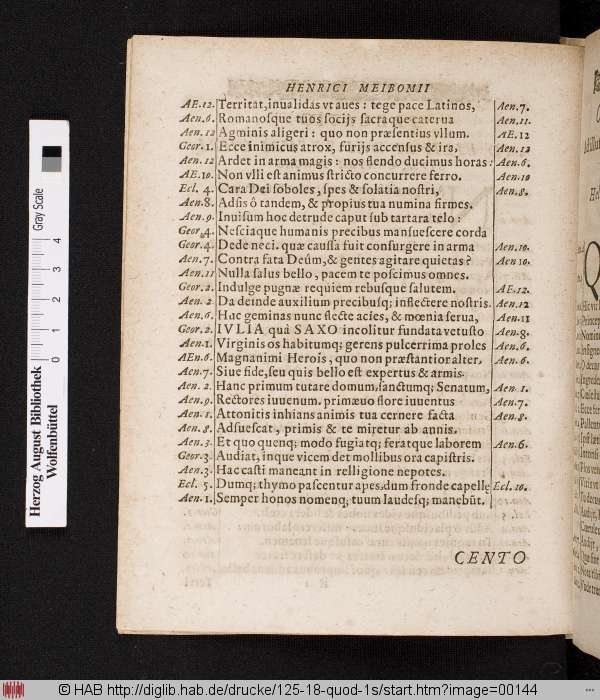 HENRICI MEIBOMII
AE.12. Territat, inualidas vt aues : tege pace Latinos, Aen.7.
Aen.6. Romanosque tuos socijs sacraque caterua Aen.11.
Aen.12 Agminis aligeri : quo non præsentius vllum. AE.12
Geor.1. Ecce inimicus atrox, furijs accensus & ira, Aen.12
Aen.12 Ardet in arma magis : nos flendo ducimus horas : Aen.6.
AE.10. Non vlli est animus stricto concurrere ferro. Aen.10
Ecl. 4. Cara Dei soboles, spes & solatia nostri, Aen.8.
Aen.8. Adsis ô tandem, & propius tua numina firmes.
Aen.9. Inuisum hoc detrude caput sub tartara telo :
Geor.4. Nesciaque humanis precibus mansuescere corda
Geor.4. Dede neci. quæ caussa fuit consurgere in arma Aen.10.
Aen.7. Contra fata Deûm, & gentes agitare quietas ? Aen 10.
Aen.11 Nulla salus bello, pacem te poscimus omnes.
Geor.2. Indulge pugnæ requiem rebusque salutem. AE.12.
Aen.2 Da deinde auxilium precibusq; inflectere nostris. Aen.12
Aen.6. Huc geminas nunc flecte acies, & mœnia serua, Aen.11
Geor.2. IVLIA quà SAXO incolitur fundata vetusto Aen.8.
Aen.1. Virginis os habitumq; gerens pulcerrima proles Aen.6.
AEn.6. Magnanimi Herois, quo non præstantior alter, Aen.6.
Aen.7. Siue fide, seu quis bello est expertus & armis.
Aen. 2. Hanc primum tutare domum, sanctumq; Senatum, Aen.1.
Aen.9. Rectores iuuenum. primæuo flore iuuentus Aen.7.
Aen.1. Attonitis inhians animis tua cernere facta Aen.8.
Aen.8. Adsuescat, primis & te miretur ab annis.
Aen.3. Et quo quenq; modo fugiatq; feratque laborem Aen.6.
Geor.3. Audiat, inque vicem det mollibus ora capistris.
Aen.3. Hac casti maneant in relligione nepotes.
Ecl. 5. Dumq; thymo pascentur apes, dum fronde capellę Ecl.10.
Aen.1. Semper honos nomenq; tuum laudesq; manebūt.
CENTO
Herzog August Bibliothek
Wolfenbüttel
Gray Scale
0 1 2 3 4
© HAB http://diglib.hab.de/drucke/125-18-quod-1s/start.htm?image=00144